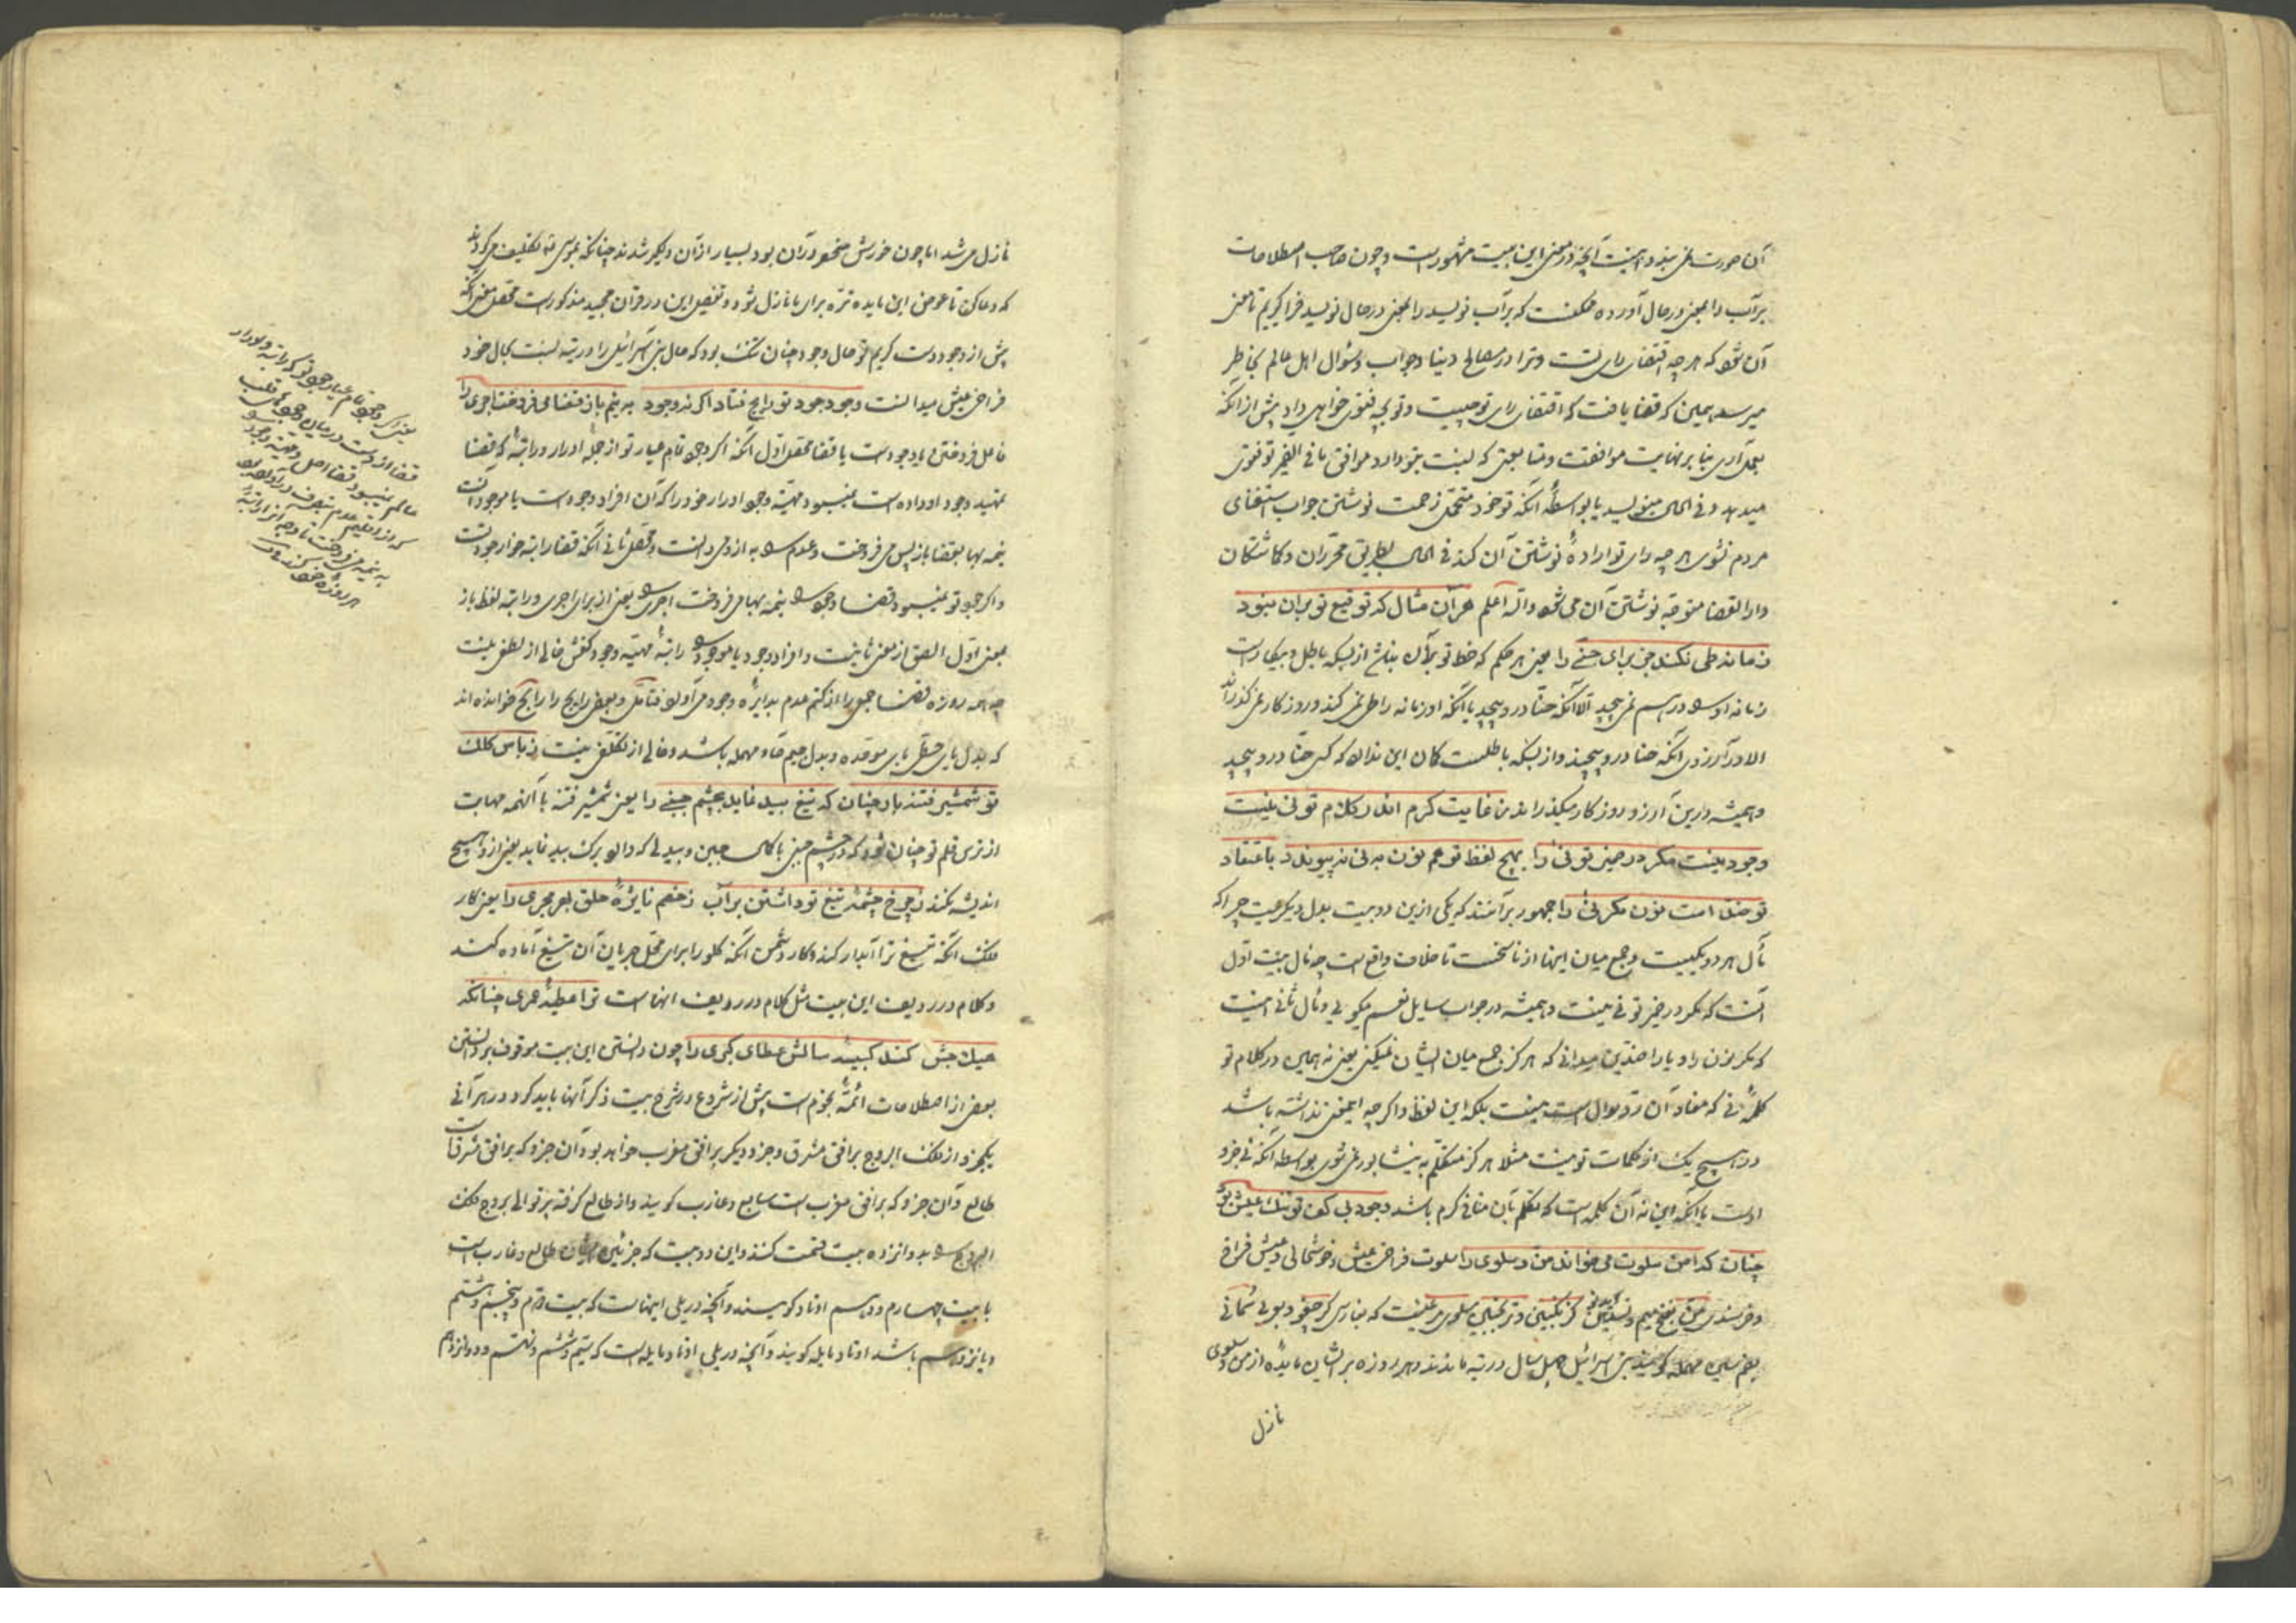 آن صورت می‌بندد اینست آنچه در معنی این بیت مشهور است و چون صاحب اصطلاحات
بر آب را بمعنی در حال آورده ممکنست که بر آب نویسد را بمعنی در حال نویسد فرا گیریم تا معنی
آن شود که هر چه اقتضای رای تست و ترا در مصالح دنیا و جواب و سؤال اهل عالم بخاطر
میرسد همین که قضا یافت که اقتضای رای تو چیست و تو بچه فتوی خواهی داد پیش از آنکه
بعمل آری بنا بر نهایت موافقت و متابعتی که نسبت بتو دارد موافق ما فی الضمیر تو فتوی
میدهد و فی الحال مینویسد یا بواسطهٔ آنکه تو خود متحمل زحمت نوشتن جواب استفتای
مردم نشوی هر چه رای تو ارادهٔ نوشتن آن کند فی الحال بطریق محرران و کماشتکان
دار القضا متوجه نوشتن آن می‌شود والله اعلم هر آن مثال که توقیع تو بران نبود
زمانه طی نکند جز برای حنی را یعنی هر حکم که خط تو بر آن نباشد از بسکه باطل و بیکار است
زمانه او را در هم نمی پیچد الا آنکه حنا در و پیچد یا آنکه او زمانه را طی نمی کند و روزکار نمی گذراند
الا در آرزوی آنکه حنا در و پیچند و از بسکه باطلست کمان این ندارد که کسی حنا در و پیچد
و همیشه درین آرزو روزکار میکذراند ز غایت کرم اندر کلام تو نی نیست
وجود نیست مکر در ضمیر تو نی را بهیچ لفظ تو هم نون به نی نه پیوندد باعتقاد
تو ضد است نون مکر نی را جمهور برآنند که یکی از این دو بیت بدل دیکریست چرا که
مآل هر دو یکیست و جمع میان اینها از ناسخست تا خلاف واقع است چه مآل بیت اول
آنست که مکر در ضمیر تو نی نیست و همیشه در جواب سایل نعم میکویی و مآل ثانی اینست
که مکر نون را و یا را ضدین میدانی که هرکز جمع میان ایشان نمیکنی یعنی نه همین در کلام تو
کلمهٔ نی که مفاد آن رد سؤال است نیست بلکه این لفظ را اکر چه این معنی نداشته باشد
در هیچ یک از کلمات تو نیست مثلا هرکز متکلم به نیشابور نمی شوی بواسطه آنکه نی جزو
اوست با آنکه این نه آن کلمه است که تکلم بآن منافی کرم باشد وجود بی کف تو تنک عیش بود
چنان که امن سلوت می خواند من و سلوی را سلوت فراخی عیش و خوشحالی و عیش فراخ
و خرسندی من بفتح میم و تشدید نون کزنکبین و ترنجبین سلوی مرغیست که بپارسی کرجفو و بوی سمانی
بضم سین مهمله کویند بنی اسرائیل چهل سال در تیه ماندند و هر روزه بر ایشان مایده از من و سلوی
نازل
نازل می‌شد اما چون خورش منحصر در آن بود بسیار از آن دلکیر شدند چنانکه بموسی تکلیف می‌کردند
که دعا کن تا عوض این مایده تره برای ما نازل شود و تفصیل این در قرآن مجید مذکور است محصل معنی آنکه
پیش از وجود دست کریم تو حال وجود چنان تنک بود که حال بنی اسرائیل را در تیه نسبت بحال خود
فراخ عیش میدانست وجود جود تو رایج فتاد اکر نه وجود به نیم باز قضا می فروخت اجری را
فاعل فروختن یا وجود است یا قضا محصل اول آنکه اکر وجود تمام عیار تو از جمله ادرار و راتبهٔ که قضا
بمهید وجود او داده است نمیبود مهیته وجود ادرار خود را که آن افراد وجود است یا موجود است
نیمه بها بقضا باز پس می فروخت و عدم را به از وی دانست و محصل ثانی آنکه قضا راتبه خوار جود تست
و اکر جود تو نمیبود قضا وجود را بنیمه بها می فروخت اجری را یعنی از برای اجری و راتبه لفظ باز
بمعنی اول الصق از معنی ثانیست و افراد وجود یا موجود را راتبهٔ مهیته وجود کفتن خالی از لطفی نیست
چه همه روزه قضا جمعی را از کتم عدم بدایرهٔ وجود می آورد فتامل و بعضی رایج را رابح خوانده اند
که بدل یای حطی بای موحده و بدل جیم حاء مهمله باشد و خالی از تکلفی نیست ز باس کلک
تو شمشیر فتنه باد چنان که تیغ بید نماید بچشم جبنی را یعنی شمشیر فتنه با آنهمه مهابت
از ترس قلم تو چنان شود که در چشم جبنی با کمال جبن و بیدلی که دارد برک بید نماید یعنی از و هیچ
اندیشه نکند ز چرخ چشمهٔ تیغ تو داشتن بر آب ز خصم نایژهٔ حلق بهر مجری را یعنی کار
فلک آنکه تیغ ترا آبدار کند و کار دشمن آنکه کلو را برای محل جریان آن تیغ آماده کند
و کلام در ردیف این بیت مثل کلام در ردیف انهاست ترا عطیهٔ عمری چنانکه
هیلاجش کند کبیسه سالش عطای کبری را چون دانستن این بیت موقوف بر دانستن
بعضی از اصطلاحات ائمهٔ نجوم است پیش از شروع در شرح بیت ذکر آنها باید کرد در هر آنی
یک جزو از فلک البروج بر افق مشرق و جزو دیکر بر افق مغرب خواهد بود آن جزو که بر افق مشرقست
طالع و آن جزو که بر افق مغرب است سابع و غارب کویند و از طالع کرفته بر توالی بروج فلک
البروج را بدوانزده بیت قسمت کنند و این دو بیت که جزئین ایشان طالع و غارب است
با بیت چهارم و دهم اوتاد کویند و آنچه در یلی اینهاست که بیت دوم و پنجم و هشتم
و یانزدهم باشد اوتاد مایله کویند و آنچه در یلی اوتاد مایله است که سیم و ششم و نهم و دوانزدهم
یعنی اکر وجود تمام عیار جود تو که راتبه و ادرار
قضا از وست در میان وجود قلب
عالم نمیبود قضا اصل وجود
که از اقلیم عدم بتصرف در آورده بود
به نیمه می فروخت تا وجه از راتبه
هر روزه خود کند